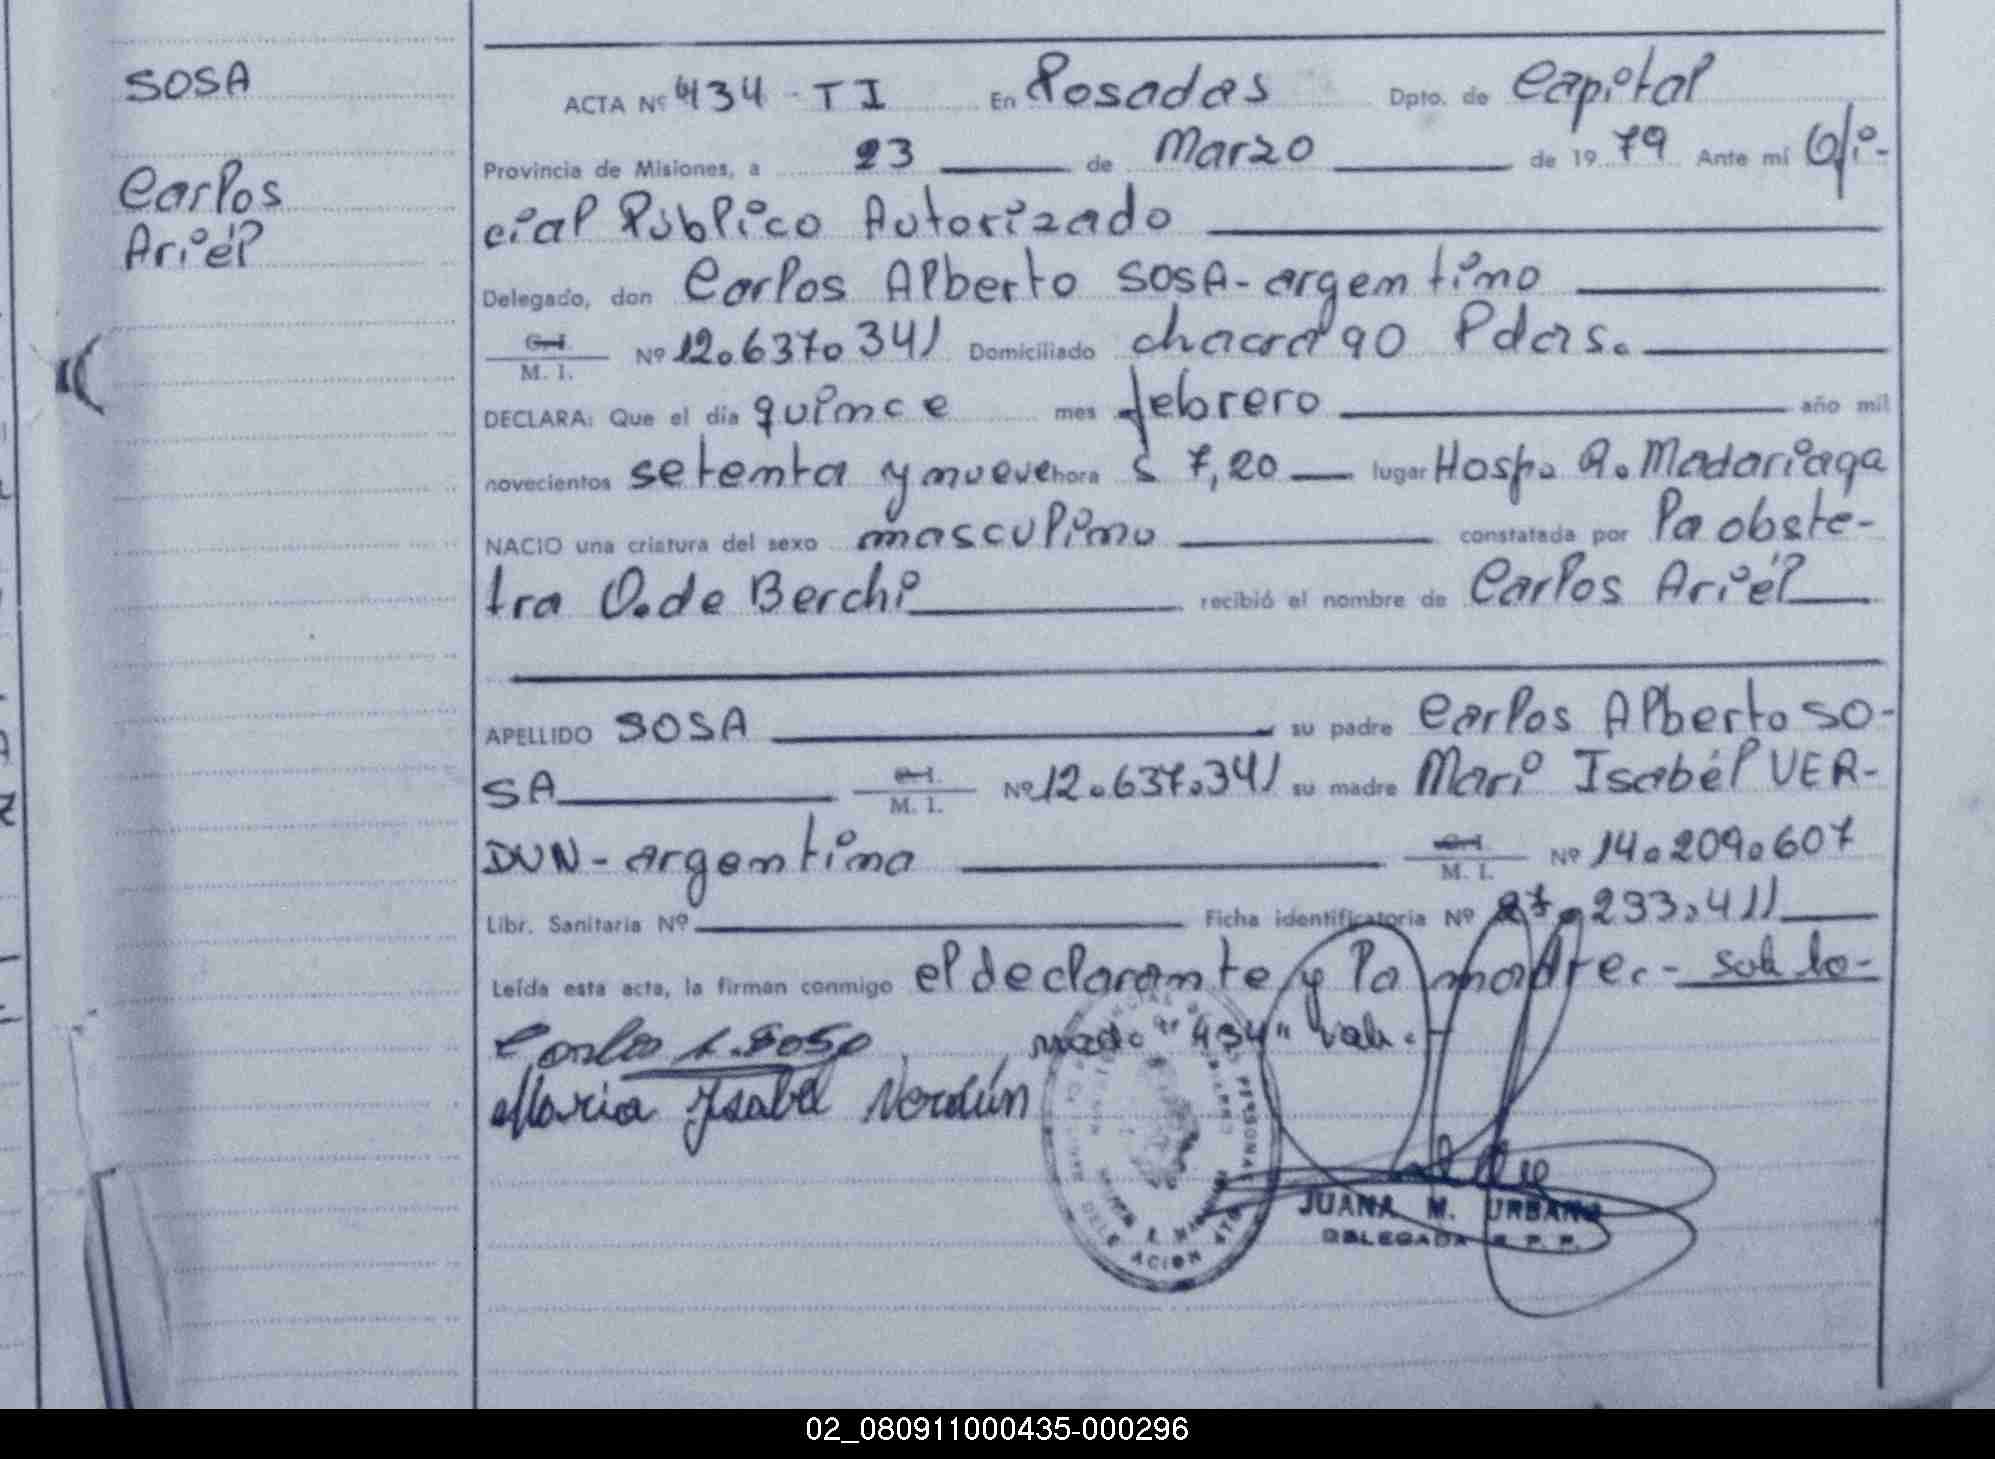 SOSA
Carlos
Ariél
ACTA Nº 434 - TI En Posadas Dpto. de Capital
Provincia de Misiones, a 23 de Marzo de 1979 Ante mí Ofi-
cial Público Autorizado
Delegado, don Carlos Alberto SOSA-argentino
C.I.
M. I. Nº 12.637.341 Domiciliado chacra 90 Pdas.
DECLARA: Que el día quince mes febrero año mil
novecientos setenta y nueve hora s 7,20 lugar Hosp. R. Madariaga
NACIO una criatura del sexo masculino constatada por la obste-
tra O. de Berchi recibió el nombre de Carlos Ariél
APELLIDO SOSA su padre Carlos Alberto SO-
SA C.I.
M. I. Nº 12.637.341 su madre Mari Isabél VER-
DUN-argentina C.I.
M. I. Nº 14.209.607
Libr. Sanitaria Nº Ficha identificatoria Nº 27.233.411
Leída esta acta, la firman conmigo el declarante y la madre.- sob bo-
rrado "434" vale.-
Carlos A. Sosa
María Ysabel Verdún
PERSONAS
DELEGACION
JUANA M. URBANO
DELEGADA R. P. P.
02_080911000435-000296